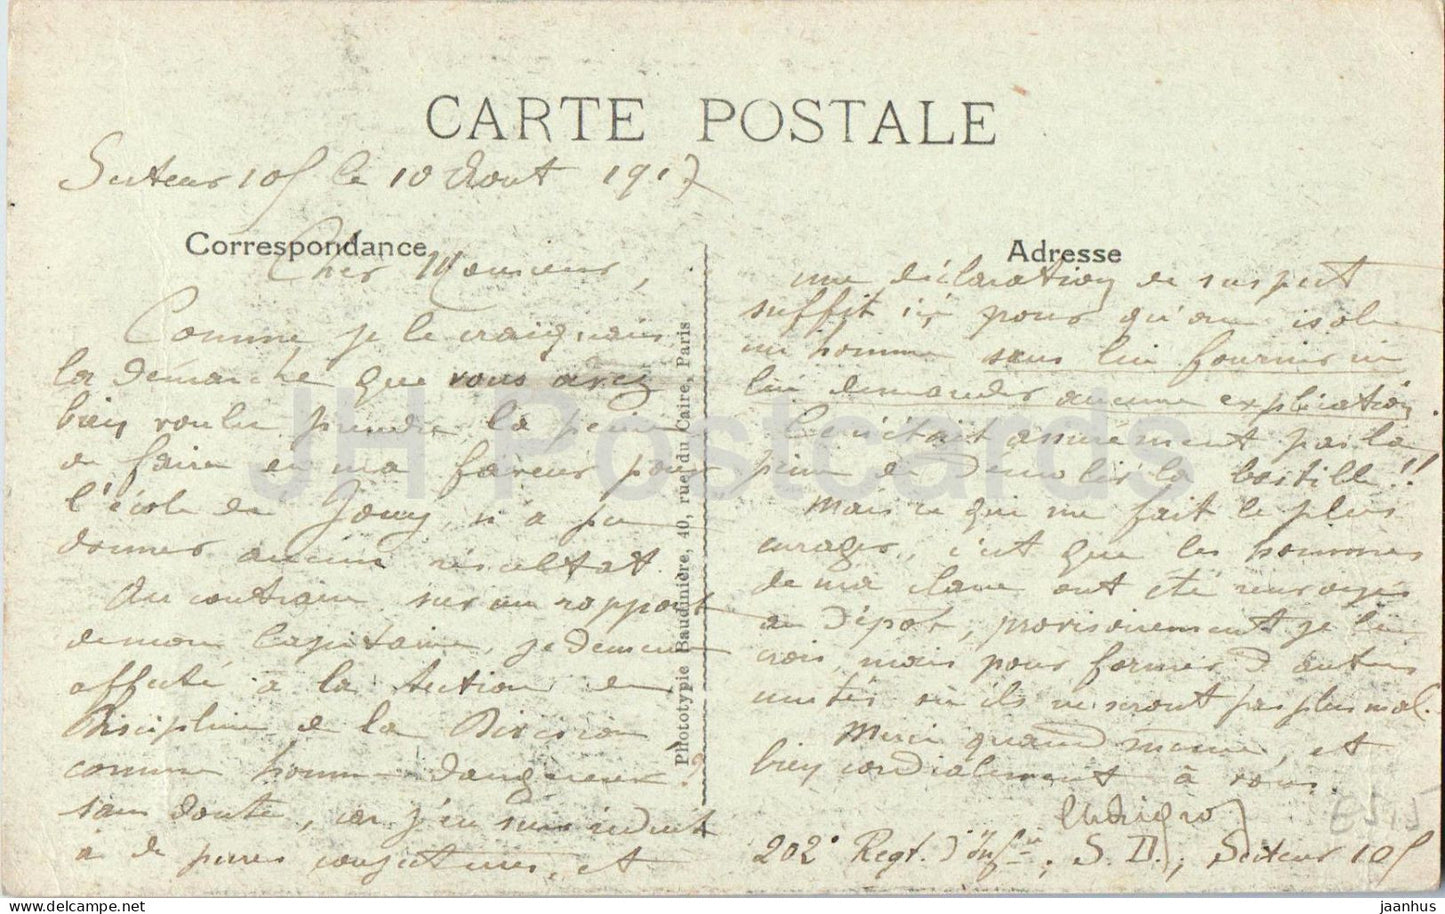 CARTE POSTALE
Secteur 105 le 10 Août 1917
Correspondance
Cher Monsieur,
Comme je le craignais
la démarche que vous avez
bien voulu prendre la peine
de faire en ma faveur pour
l'école de Jouy, n'a pu
donner aucun résultat.
Au contraire, sur un rapport
de mon Capitaine, je demeure
affecté à la Section de
Discipline de la Division
comme homme dangereux?
sans doute, car j'en suis réduit
à de pures conjectures, et
Phototypie Baudinière, 40, rue du Caire, Paris
Adresse
une déclaration de suspect
suffit ici pour qu'on isole
un homme sans lui fournir ni
lui demander aucune explication.
Ce n'était assurément pas la
peine de démolir la bastille!!
Mais ce qui me fait le plus
enrager, c'est que les hommes
de ma classe ont été renvoyés
au Dépôt, provisoirement je le
crois, mais pour former d'autres
unités où ils ne seront pas plus mal.
Merci quand même, et
bien cordialement à vous.
202e Regt. d'Infie, S. D., Secteur 105
JH Postcards
delcampe.net
jaanhus